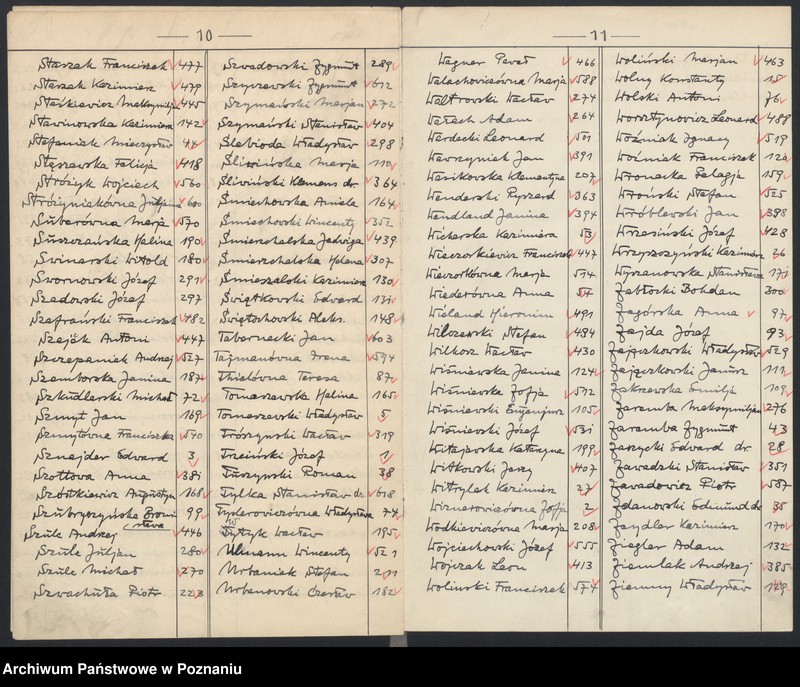 10
Staszak Franciszek 477
Staszek Kazimierz 479
Staśkiewicz Maksymiljan 445
Stawinowska Kazimiera 142
Stefaniak Mieczysław 44
Stęszewska Felicja 418
Stróżyk Wojciech 560
Stróżyniakówna Juljanna 600
Suberówna Marja 570
Suszczańska Halina 190
Swinarski Witold 180
Swornowski Józef 291
Szadowski Józef 297
Szafrański Franciszek 482
Szajek Antoni 447
Szczepaniak Andrzej 527
Szemborska Janina 187
Szkudlarski Michał 72
Szmyt Jan 169
Szmytówna Franciszka 540
Sznajder Edward 3
Szottowa Anna 381
Szóstkiewicz Augustyn 168
Szubryczyńska Broni
sława 99
Szulc Andrzej 446
Szulc Juljan 280
Szulc Michał 270
Szwachuła Piotr 223
Szwadowski Zygmunt 289
Szyczewski Zygmunt 612
Szymański Marjan 272
Szymański Stanisław 404
Ślebioda Władysław 298
Śliwińska Marja 110
Śliwiński Klemens dr. 364
Śmiechowska Aniela 164
Śmiechowski Wincenty 352
Śmierzchalska Jadwiga 439
Śmierzchalska Helena 307
Śmieszalski Kazimierz 130
Świątkowski Edward 131
Świętochowski Aleks. 148
Tabernacki Jan 603
Tajmanówna Irena 594
Thielówna Teresa 87
Tomaszewska Halina 165
Tomaszewski Władysław 5
Trószyński Wacław 319
Trzciński Józef 1
Tuszyński Roman 38
Tylka Stanisław dr. 618
Tyderowiczówna Władysława 74
Tytyk Wacław 195
Ulmann Wincenty 521
Urbaniak Stefan 211
Urbanowski Czesław 182
11
Wagner Paweł 466
Walachowiczówna Marja 588
Waltrowski Wacław 274
Wałach Adam 264
Wardecki Leonard 501
Wawrzyniak Jan 391
Wasikowska Klementyna 207
Wenderski Ryszard 363
Wendland Janina 394
Wicherska Kazimiera 53
Wieczorkiewicz Franciszek 447
Wieczorkówna Marja 514
Wiederówna Anna 51
Wieland Hieronim 491
Wilczewski Stefan 434
Wilkosz Wacław 430
Wiśniewska Janina 124
Wiśniewska Zofja 512
Wiśniewski Eugenjusz 105
Wiśniewski Józef 531
Witajewska Katarzyna 199
Witkowski Jerzy 407
Witrylak Kazimierz 27
Wiznerowiczówna Zofja 2
Wodkiewiczówna Marja 208
Wojciechowski Józef 555
Wojczak Leon 413
Woliński Franciszek 577
Woliński Marjan 463
Wolny Konstanty 15
Wolski Antoni 76
Worsztynowicz Leonard 488
Woźniak Ignacy 519
Woźniak Franciszek 120
Wronecka Pelagja 159
Wroński Stefan 525
Wróblewski Jan 398
Wrzesiński Józef 428
Wrzyszczyński Kazimierz 26
Wyszanowska Stanisława 171
Zabłocki Bohdan 300
Zagórska Anna 97
Zajda Józef 93
Zajączkowski Władysław 529
Zajączkowski Janusz 111
Zakrzewska Emilja 109
Zaremba Maksymiljan 276
Zaremba Zygmunt 43
Zarzycki Edward dr. 28
Zawadzki Stanisław 351
Zawadowicz Piotr 587
Zdanowski Edmund dr. 35
Zeydler Kazimierz 170
Ziegler Adam 132
Ziemlak Andrzej 385
Ziemny Władysław 129
Archiwum Państwowe w Poznaniu